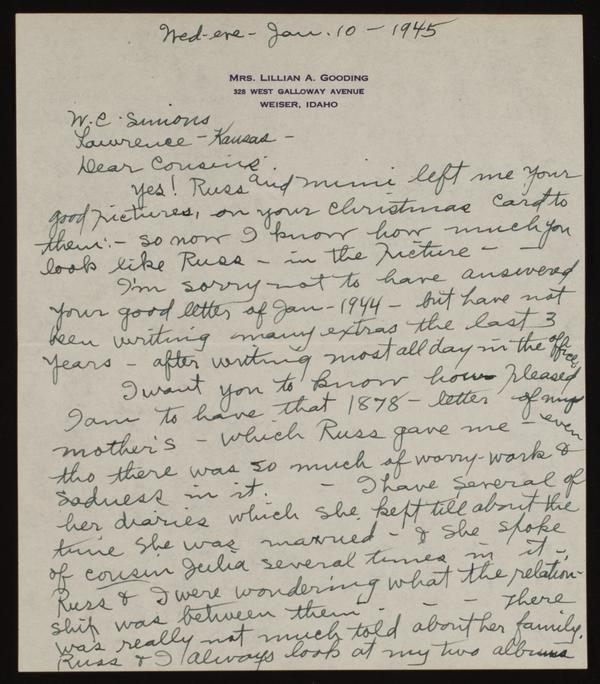 Wed-eve - Jan. 10 - 1945
MRS. LILLIAN A. GOODING
328 WEST GALLOWAY AVENUE
WEISER, IDAHO
W.C. Simons
Lawrence - Kansas -
Dear Cousins
Yes! Russ and Mimi left me your
good pictures, on your Christmas card to
them: - so now I know how much you
look like Russ - in the picture - -
I'm sorry not to have answered
your good letter of Jan - 1944 - but have not
been writing many extras the last 3
years - after writing most all day in the office
I want you to know how pleased
I am to have that 1878 - letter of my
mother's - which Russ gave me - even
tho there was so much of worry-work &
sadness in it. - I have several of
her diaries which she kept till about the
time she was married - & she spoke
of cousin Julia several times in it -,
Russ & I were wondering what the relation-
ship was between them - - - There
was really not much told about her family.
Russ & I always look at my two albums